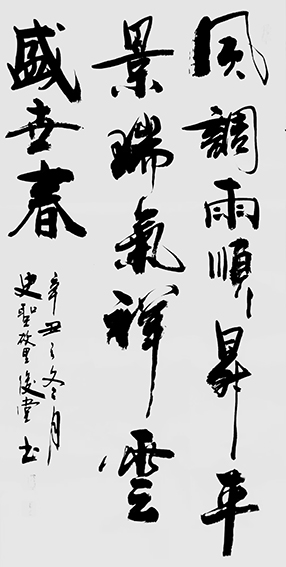 風調雨順昇平
景瑞氣祥雲
盛世春
辛丑之冬月
史聖故里俊堂書